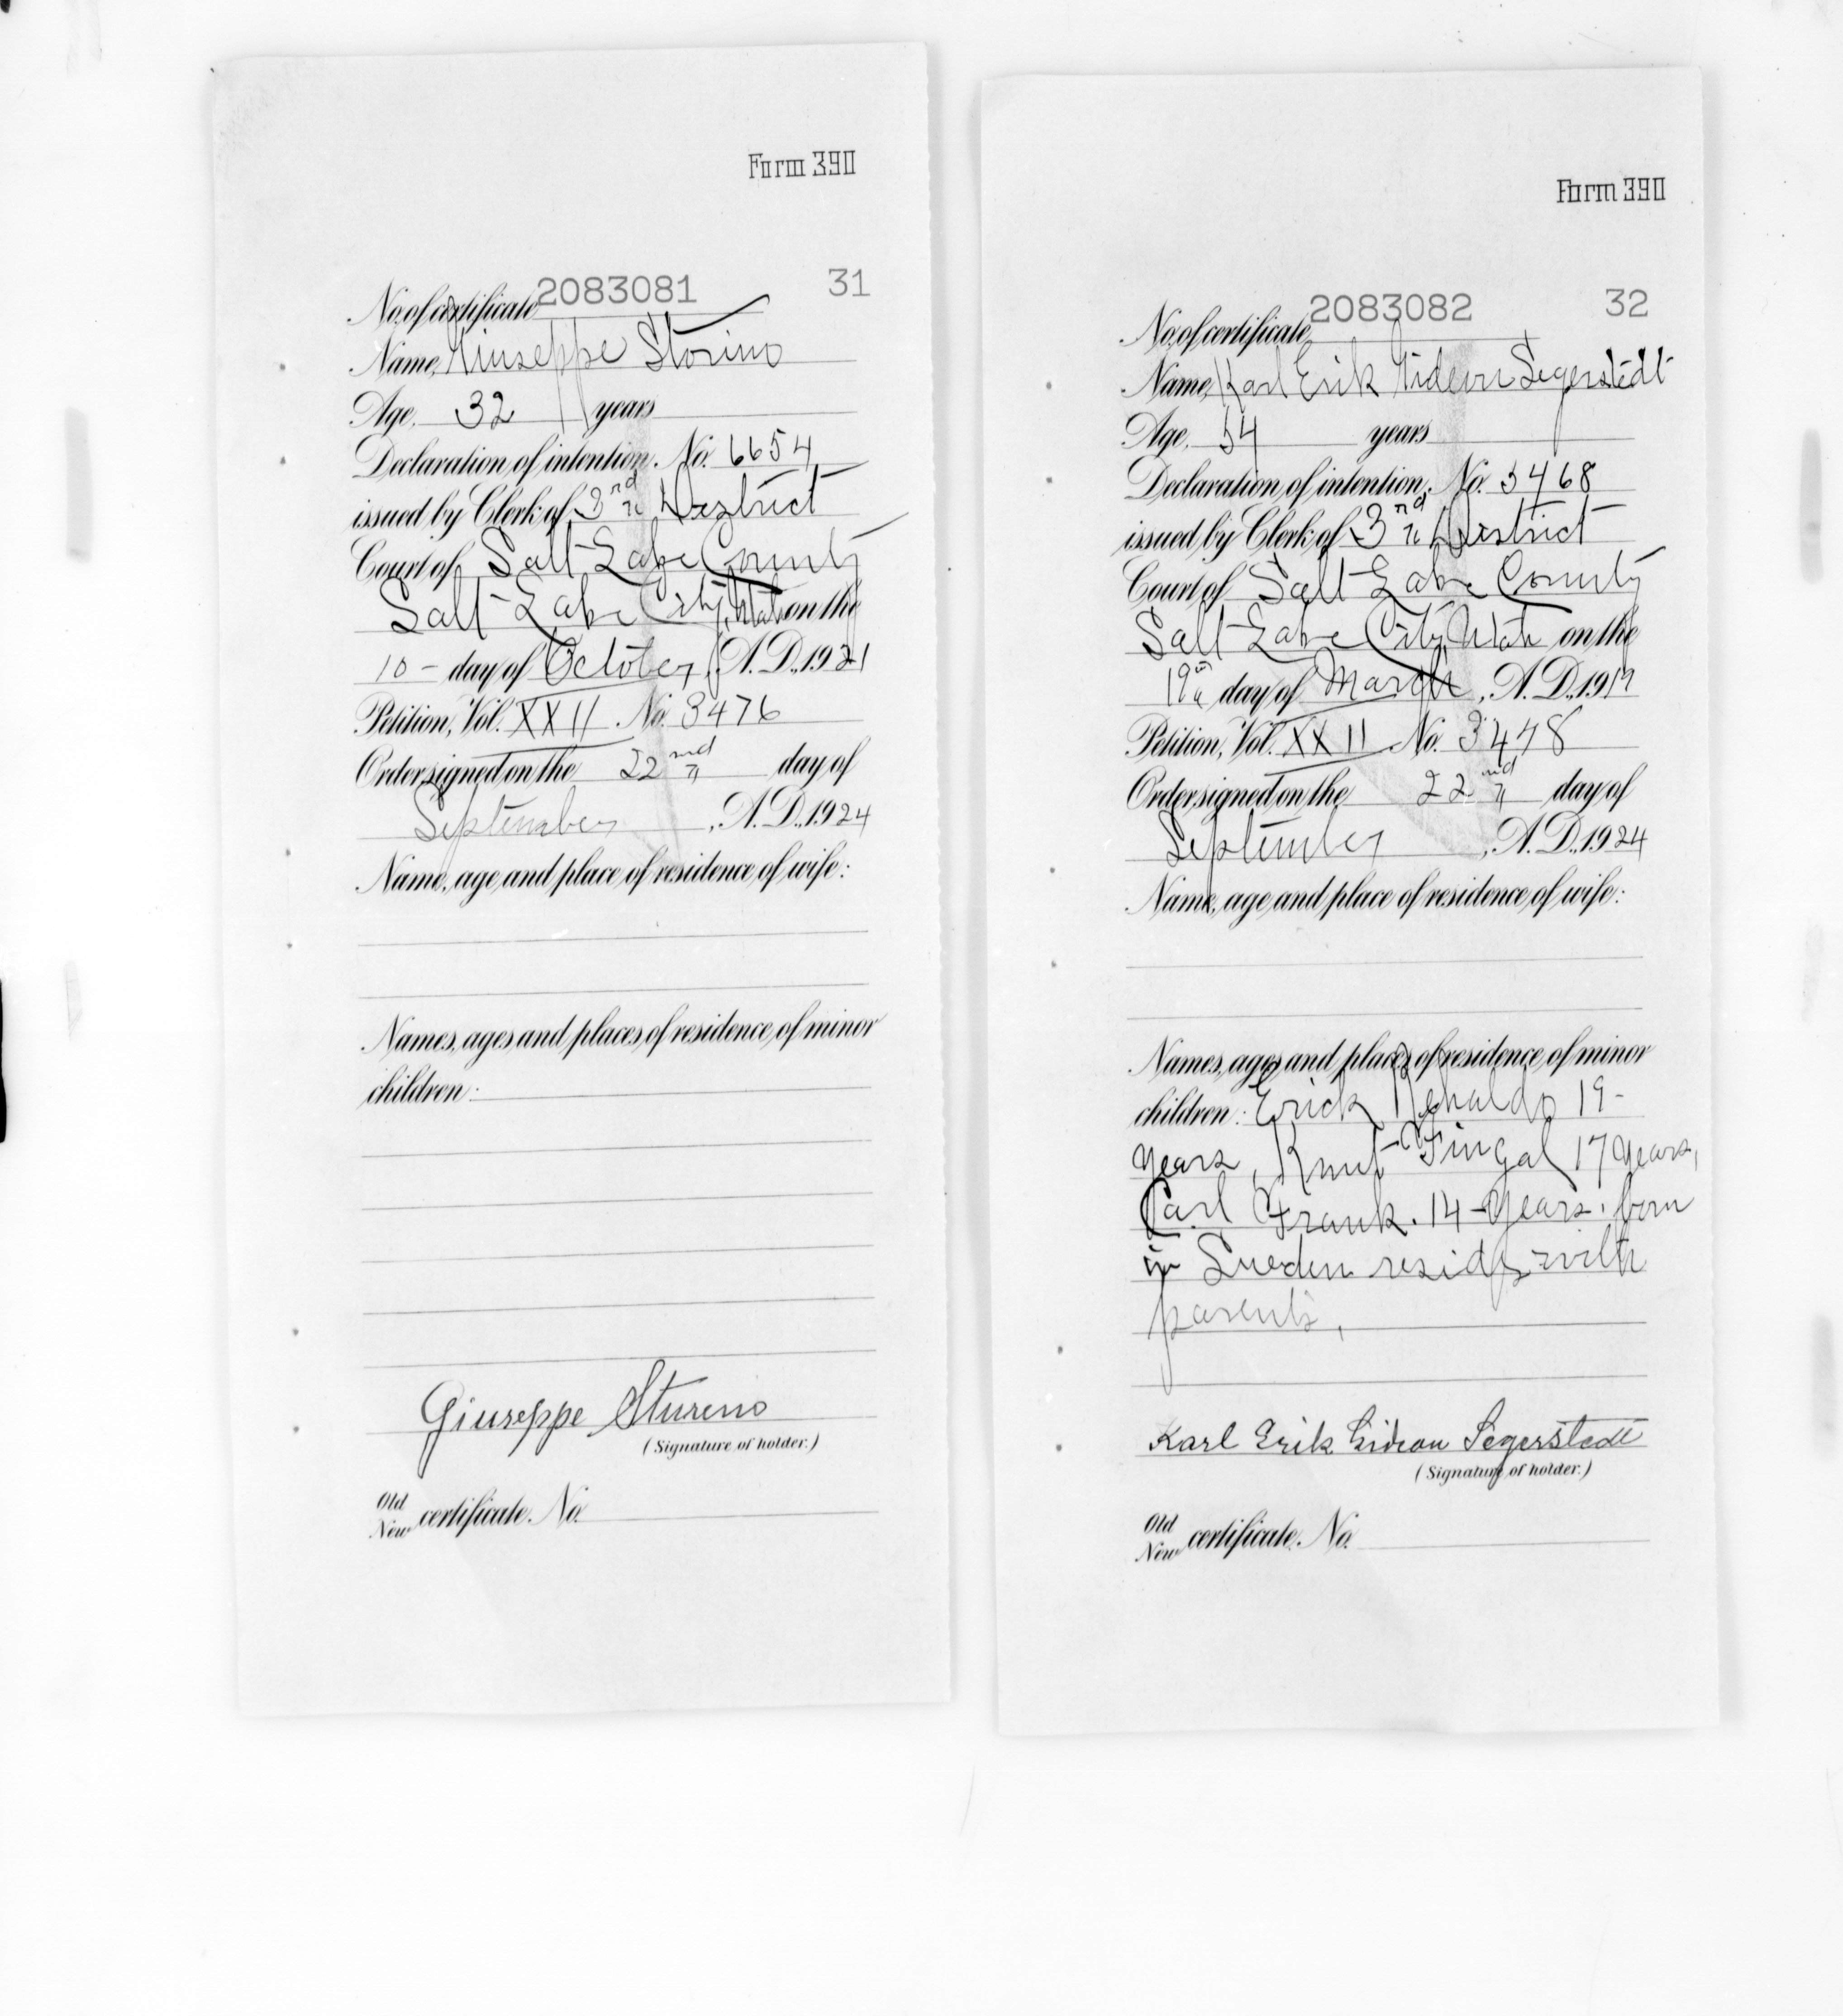 Form 390
No. of certificate 2083081 31
Name, Giuseppe Storino
Age, 32 years
Declaration of intention, No. 6654
issued by Clerk of 3rd District
Court of Salt Lake County
Salt Lake City, Utah on the
10 - day of October, A.D., 1921
Petition, Vol. XXII No. 3476
Order signed on the 22nd day of
September, A.D., 1924
Name, age and place of residence of wife:
Names, ages and places of residence of minor
children:
Giuseppe Stureno
(Signature of holder.)
Old
New certificate. No.
Form 390
No. of certificate, 2083082 32
Name, Karl Erik Gideon Segerstedt
Age, 54 years
Declaration of intention, No. 5468
issued by Clerk of 3rd District
Court of Salt Lake County
Salt Lake City, Utah on the
19th day of March, A.D., 1919
Petition, Vol. XXII No. 3478
Order signed on the 22nd day of
September, A.D., 1924
Name, age and place of residence of wife:
Names, ages and places of residence of minor
children: Erick 19-
years, Knut Fingal 17 years,
Carl Frank. 14 - years. born
in Sweden resides with
parents,
Karl Erik Gideon Segerstedt
(Signature of holder.)
Old
New certificate. No.